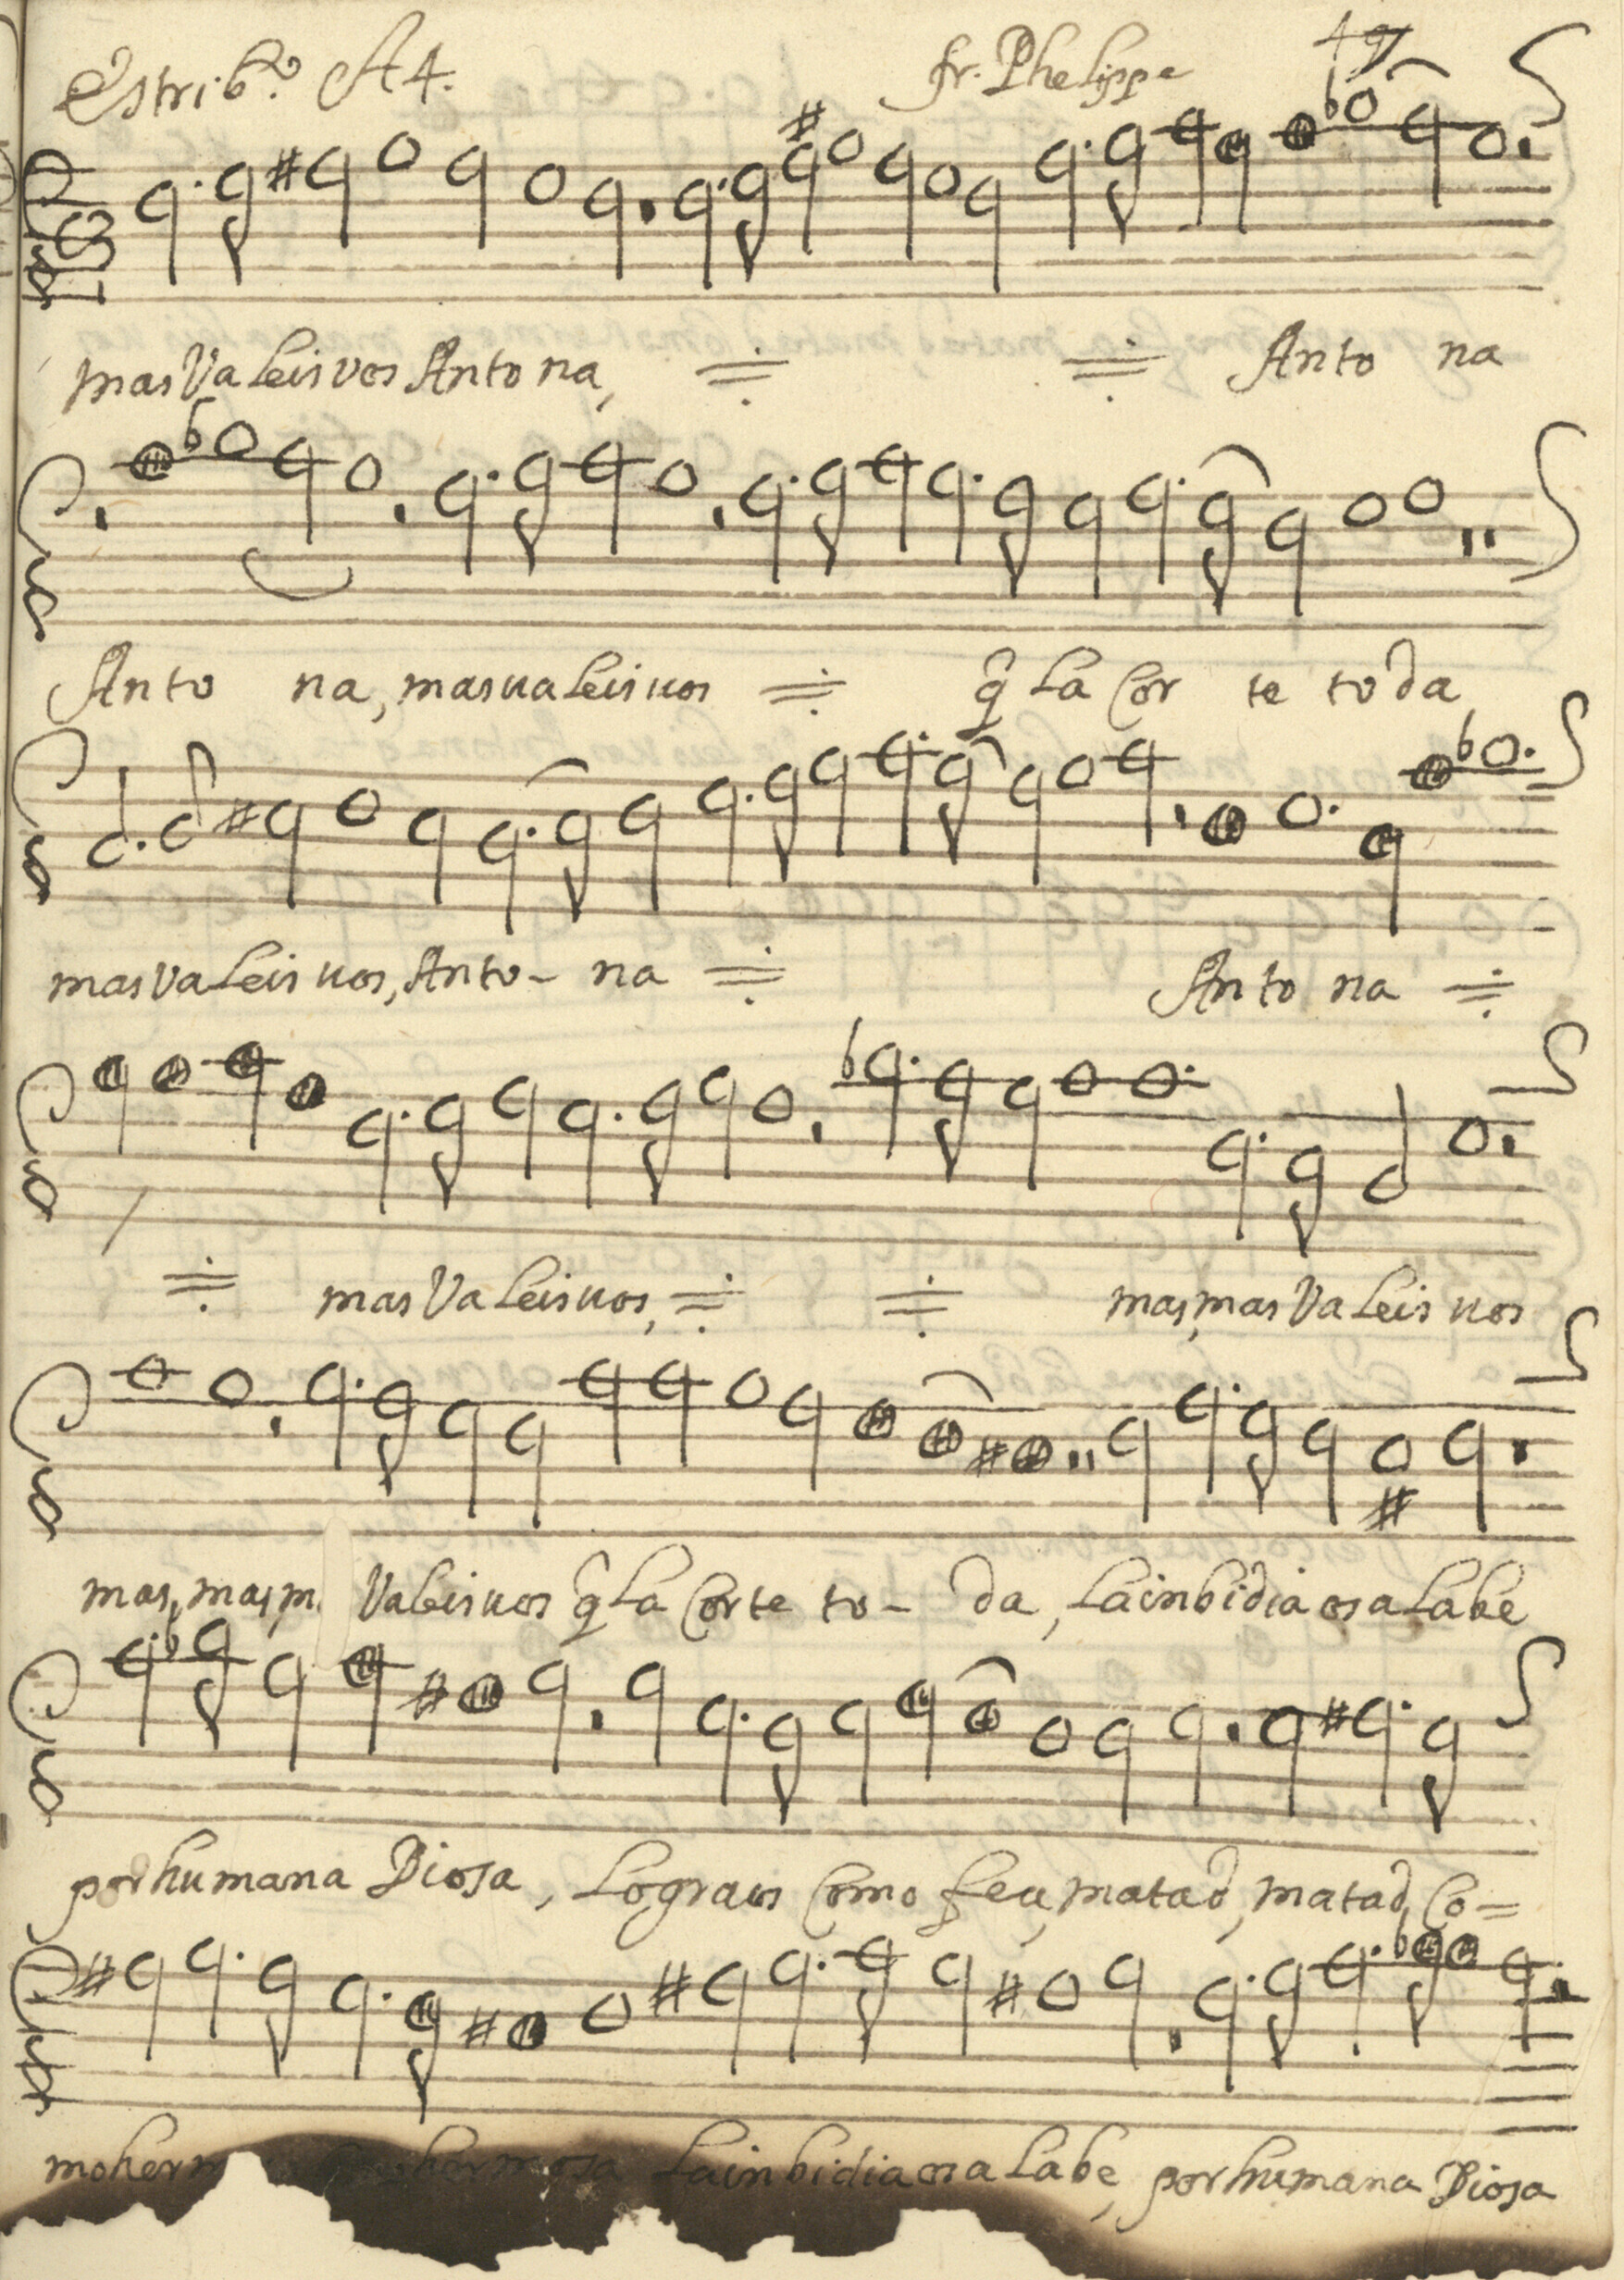 Estribo. A 4. fr. Phelippe 49
mas Valeis vos Antona, Anto na
Anto na, mas ualeis uos q̃ la Cor te toda
mas Valeis uos, Anto- na Anto na
mas Valeis uos, mas, mas Valeis uos
mas, mas, m. Valeis uos q̃ la Corte to- da, la inbidia os alabe
por humana Diosa, lograis Como fea, matad, matad, Co=
moherm hermosa la inbidia os alabe, por humana Diosa